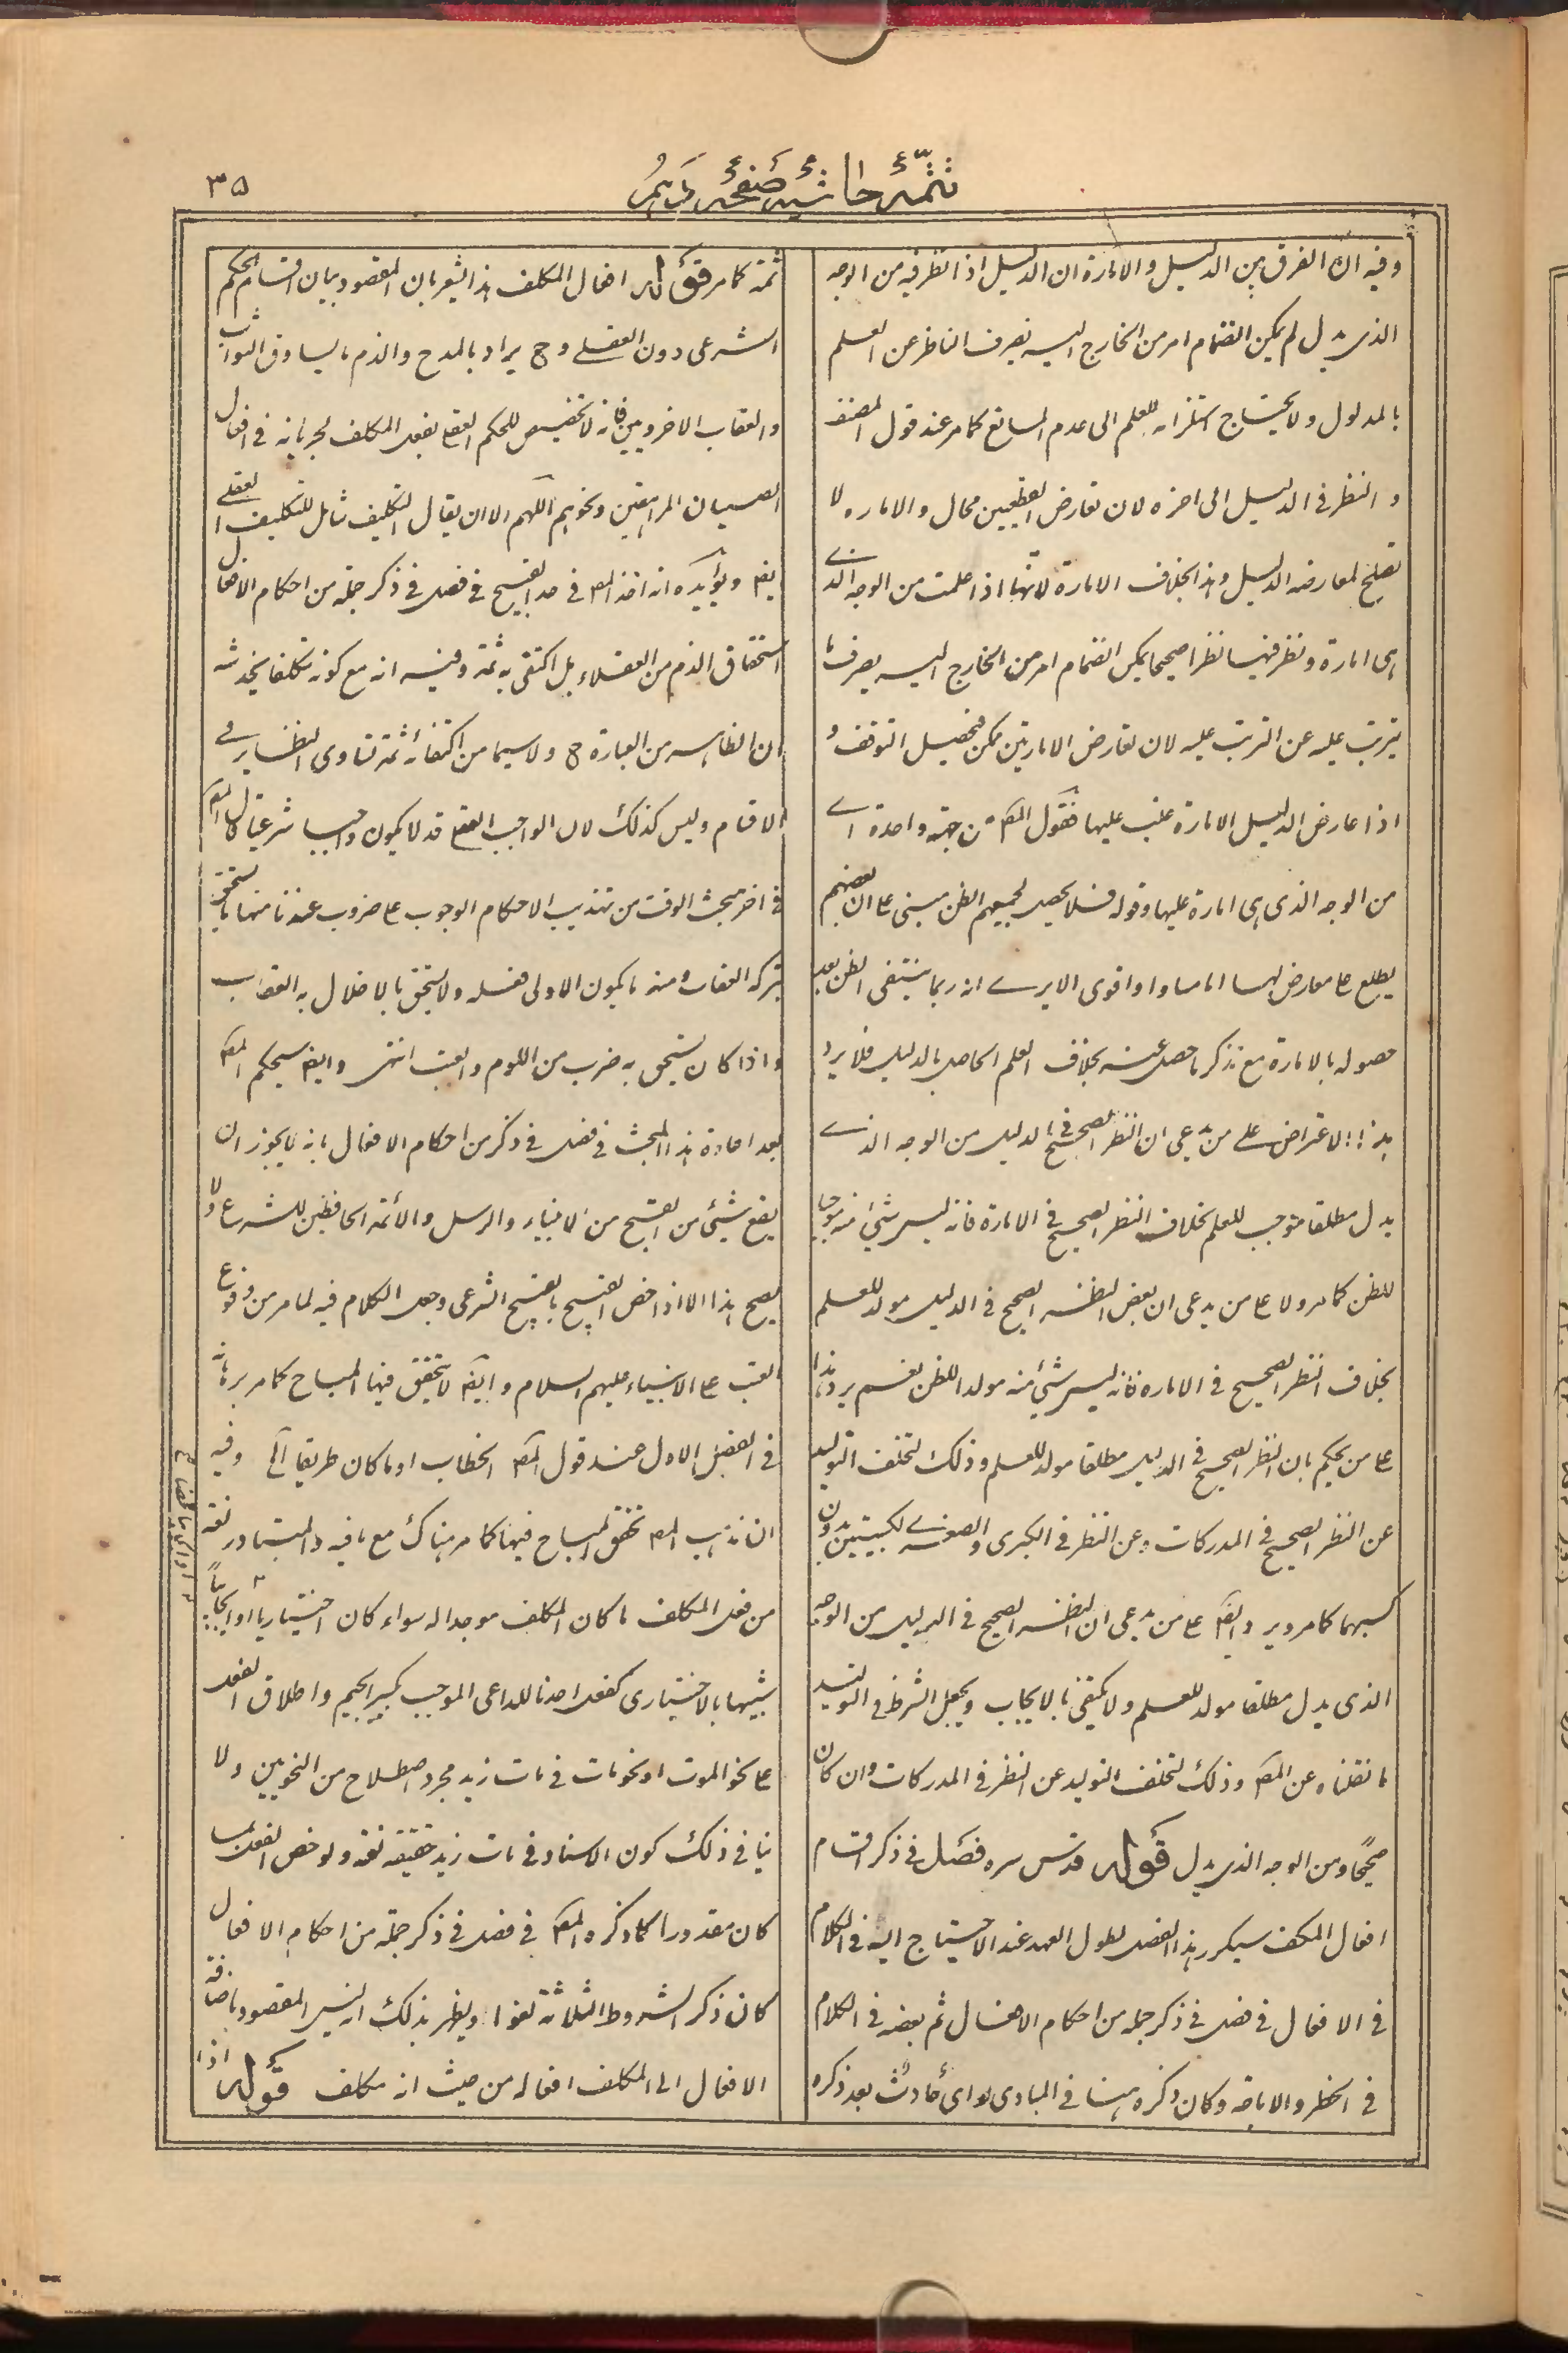 تتمّهٔ حاشیهٔ صفحهٔ
۳۵
وفیه ان الفرق بین الدلیل والامارة ان الدلیل اذا نظر فیه من الوجه
الذی یدل لم یمکن انضمام امر من الخارج الیه یصرف الناظر عن العلم
بالمدلول ولا یحتاج استلزامه للعلم الی عدم المانع کما مر عند قول المصنف
والنظر فی الدلیل الی اخره لان تعارض القطعیین محال والاماره لا
تصلح لمعارضه الدلیل وهذا بخلاف الامارة لانها اذا علمت من الوجه الذے
هی امارة ونظر فیها نظرا صحیحا یمکن انضمام امر من الخارج الیه یصرف ما
یترتب علیه عن الترتب علیه لان تعارض الامارتین ممکن فیحصل التوقف و
اذا عارض الدلیل الامارة غلب علیها فقول المصٓ من جهته واحدة اے
من الوجه الذی هی امارة علیها وقوله فلا یحصل لجمیعهم الظن مبنی علی ان بعضهم
یطلع علی معارض لها اما مساو او اقوی الا یرے انه ربما ینتفی الظن بعد
حصوله بالامارة مع تذکر ما حصل عنه بخلاف العلم الحاصل بالدلیل فلا یرد
هذا الاعتراض علی من یدعی ان النظر الصحیح فی الدلیل من الوجه الذے
یدل مطلقا موجب للعلم بخلاف النظر الصحیح فی الامارة فانه لیس شئ منه موجبا
للظن کما مر ولا علی من یدعی ان بعض النظر الصحیح فی الدلیل مولد للعلم
بخلاف النظر الصحیح فی الاماره فانه لیس شئ منه مولدا للظن نعم یرد هذا
علی من یحکم بان النظر الصحیح فی الدلیل مطلقا مولد للعلم وذلک لتخلف التولید
عن النظر الصحیح فی المدرکات وعن النظر فی الکبری والصغرے لکسبیتین بدون
کسبهما کما مر ویرد ایضٓ علی من یدعی ان النظر الصحیح فی الدلیل من الوجه
الذی یدل مطلقا مولد للعلم ولا یکتفی بالایجاب ویجعل الشرط فی التولید
ما نقلناه عن المصٓ وذلک لتخلف التولید عن النظر فی المدرکات وان کان
صحیحًا ومن الوجه الذی یدل قَولُه قدس سره فصَل فی ذکر اقسام
افعال المکلف سیکرر هذا الفصل لطول العهد عند الاحتیاج الیه فی الکلام
فی الافعال فی فصل فی ذکر جمله من احکام الافعال ثم بعضه فی الکلام
فی الحظر والاباحه وکان ذکره هنا فی المبادی لو ای حادث بعد ذکره
ثمة کما مر قَولُه افعال المکلف هذا یشعر بان المقصود بیان اقسام الحکم
الشرعی دون العقلے وح یراد بالمدح والذم ما یساوق الثواب
والعقاب الاخرویین فانه لا تخصیص للحکم العقلی بفعل المکلف لجریانه فی افعال
الصبیان المراهقین ونحوهم اللهم الا ان یقال التکلیف شامل للتکلیف العقلے
ایضٓ ویؤیده انه اخذ المصٓ فی حد القبیح فی فصل فی ذکر جملة من احکام الافعال
استحقاق الذم من العقلاء بل اکتفی به ثمة وفیه انه مع کونه تکلفا یخدشه
ان الظاهر من العبارة ح ولا سیما من اکتفائه ثمة تساوی النظایر فے
الاقسام ولیس کذلک لان الواجب العقلی قد لا یکون واجبا شرعیا قال المصٓ
فی اخر مبحث الوقت من تهذیب الاحکام الوجوب علی ضروب عندنا منها ما یستحق
بترکه العقاب ومنه ما یکون الاولی فعله ولا یستحق بالاخلال به العقاب
واذا کان یستحق به ضرب من اللوم والعتب انتهی وایضٓ سیحکم المصٓ
بعد اعادة هذا المبحث فی فصل فی ذکر من احکام الافعال بانه لا یجوز ان
یقع شئ من القبیح من الانبیاء والرسل والائمة الحافظین للشرع ولا
یصح هذا الا اذا خص القبیح بالقبیح الشرعی وجعل الکلام فیه لما مر من وقوع
العتب علی الانبیاء علیهم السلام وایضٓ لا یتحقق فیها المباح کما مر برهانه
فی الفصل الاول عند قول المصٓ الخطاب او ما کان طریقا الٓی وفیه
ان مذهب المصٓ تحقق المباح فیها کما مر هناک مع ما فیه والمتبادر لغة
من فعل المکلف ما کان المکلف موجدا له سواء کان اختیاریا او ایجابیاً
شبیها بالاختیاری کفعل احدنا للداعی الموجب واطلاق الفعل
علی نحو الموت او نحو مات فی مات زید مجرد اصطلاح من النحویین ولا
ینافی ذلک کون الاسناد فی مات زید حقیقه لغه ولو خص الفعل بما
کان مقدورا کما ذکره المصٓ فی فصل فی ذکر جملة من احکام الافعال
کان ذکر الشروط الثلاثة لغوا ویظهر بذلک انه لیس المقصود باضافة
الافعال الی المکلف افعاله من حیث انه مکلف قَولُه اذا